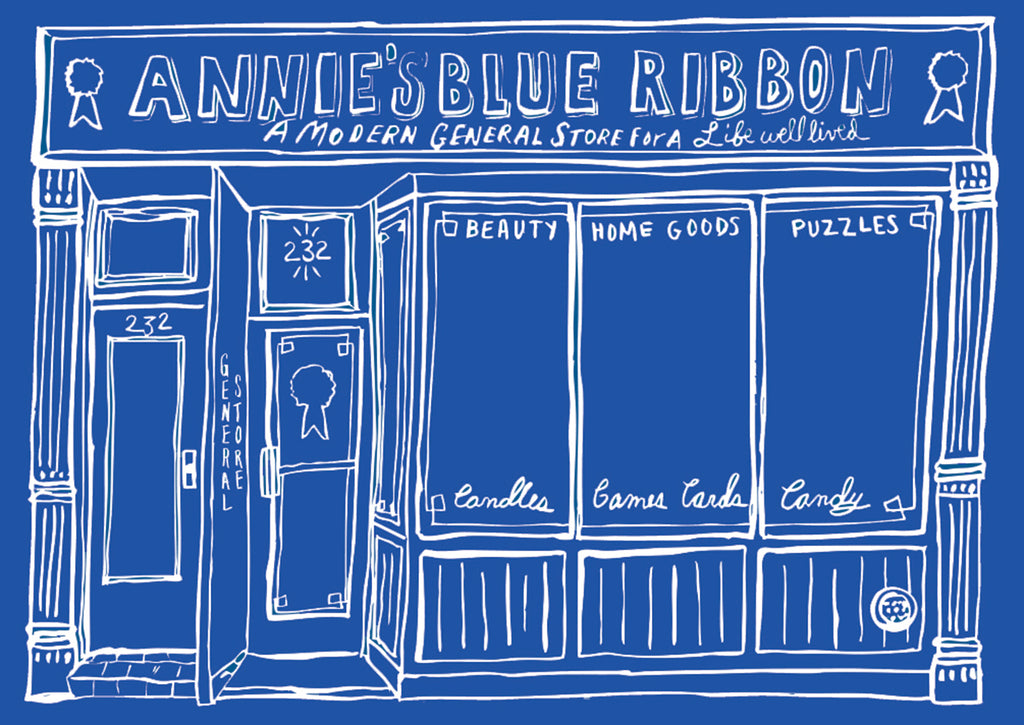 ANNIE'S BLUE RIBBON
A MODERN GENERAL STORE FOR A Life well lived
BEAUTY HOME GOODS PUZZLES
232
232
GENERAL
STORE
Candles Games Cards Candy